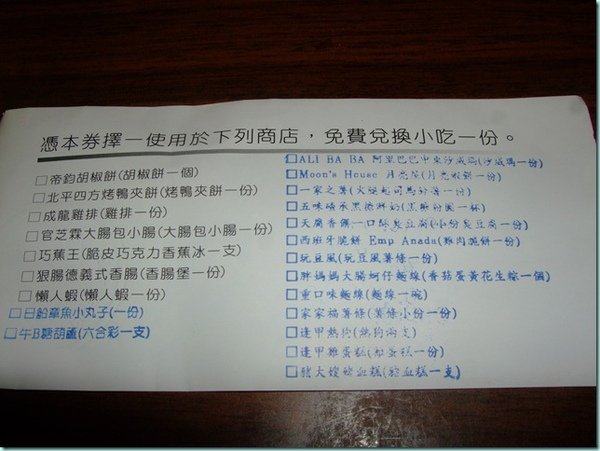 憑本券擇一使用於下列商店，免費兌換小吃一份。
□帝鈞胡椒餅(胡椒餅一個)
□北平四方烤鴨夾餅(烤鴨夾餅一份)
□成龍雞排(雞排一份)
□官芝霖大腸包小腸(大腸包小腸一份)
□巧蕉王(脆皮巧克力香蕉冰一支)
□狠腸德義式香腸(香腸堡一份)
□懶人蝦(懶人蝦一份)
□日船章魚小丸子(一份)
□午B糖葫蘆(六合彩一支)
□ALI BA BA 阿里巴巴中東沙威瑪(沙威瑪一份)
□Moon's House 月亮屋(月亮蝦餅一份)
□一家之薯(火燒起司馬鈴薯一份)
□五味
□天席香領一口酥臭豆腐(小份臭豆腐一份)
□西班牙脆餅 Emp Anada(雞肉脆餅一份)
□玩豆風(玩豆風薯條一份)
□胖媽媽大腸蚵仔麵線(香菇蛋黃花生粽一個)
□重口味麵線(麵線一碗)
□家家福薯條(薯條小份一份)
□逢甲熱狗(熱狗兩支)
□逢甲雞蛋糕(雞蛋糕一份)
□豬大嫂豬血糕(豬血糕一支)